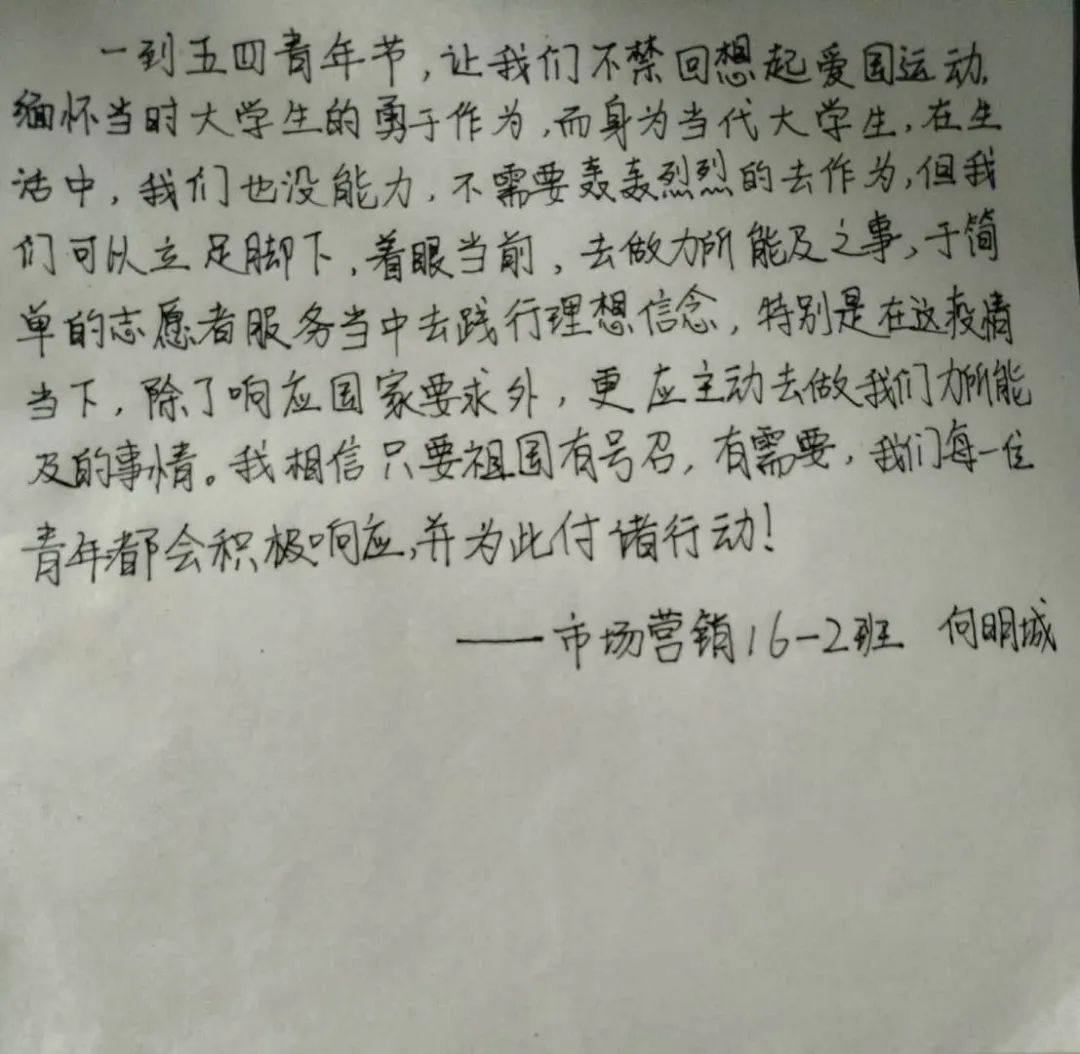 一到五四青年节，让我们不禁回想起爱国运动，
缅怀当时大学生的勇于作为，而身为当代大学生，在生
活中，我们也没能力，不需要轰轰烈烈的去作为，但我
们可以立足脚下，着眼当前，去做力所能及之事，于简
单的志愿者服务当中去践行理想信念，特别是在这疫情
当下，除了响应国家要求外，更应主动去做我们力所能
及的事情。我相信只要祖国有号召，有需要，我们每一位
青年都会积极响应，并为此付诸行动！
——市场营销16-2班 何明城